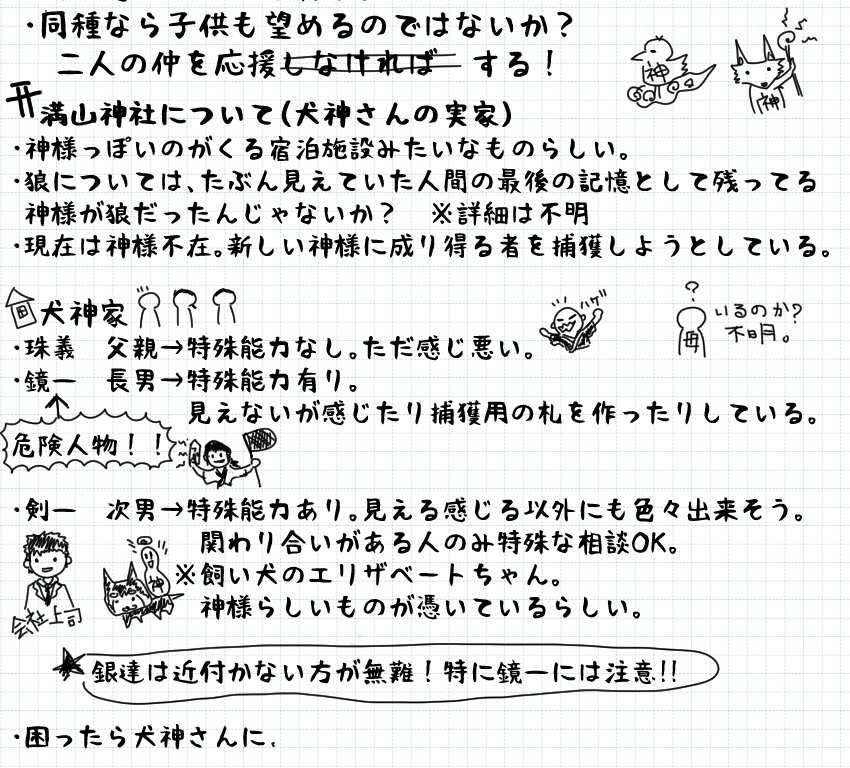 ・同種なら子供も望めるのではないか？
二人の仲を応援しなければ する！
神
神
満山神社について(犬神さんの実家)
・神様っぽいのがくる宿泊施設みたいなものらしい。
・狼については、たぶん見えていた人間の最後の記憶として残ってる
神様が狼だったんじゃないか？ ※詳細は不明
・現在は神様不在。新しい神様に成り得る者を捕獲しようとしている。
犬神家
ハゲ
？
母
いるのか？
不明。
・珠義 父親→特殊能力なし。ただ感じ悪い。
・鏡一 長男→特殊能力有り。
見えないが感じたり捕獲用の札を作ったりしている。
危険人物！！
・剣一 次男→特殊能力あり。見える感じる以外にも色々出来そう。
関わり合いがある人のみ特殊な相談OK。
※飼い犬のエリザベートちゃん。
神様らしいものが憑いているらしい。
神
会社上司
★銀達は近付かない方が無難！特に鏡一には注意!!
・困ったら犬神さんに.